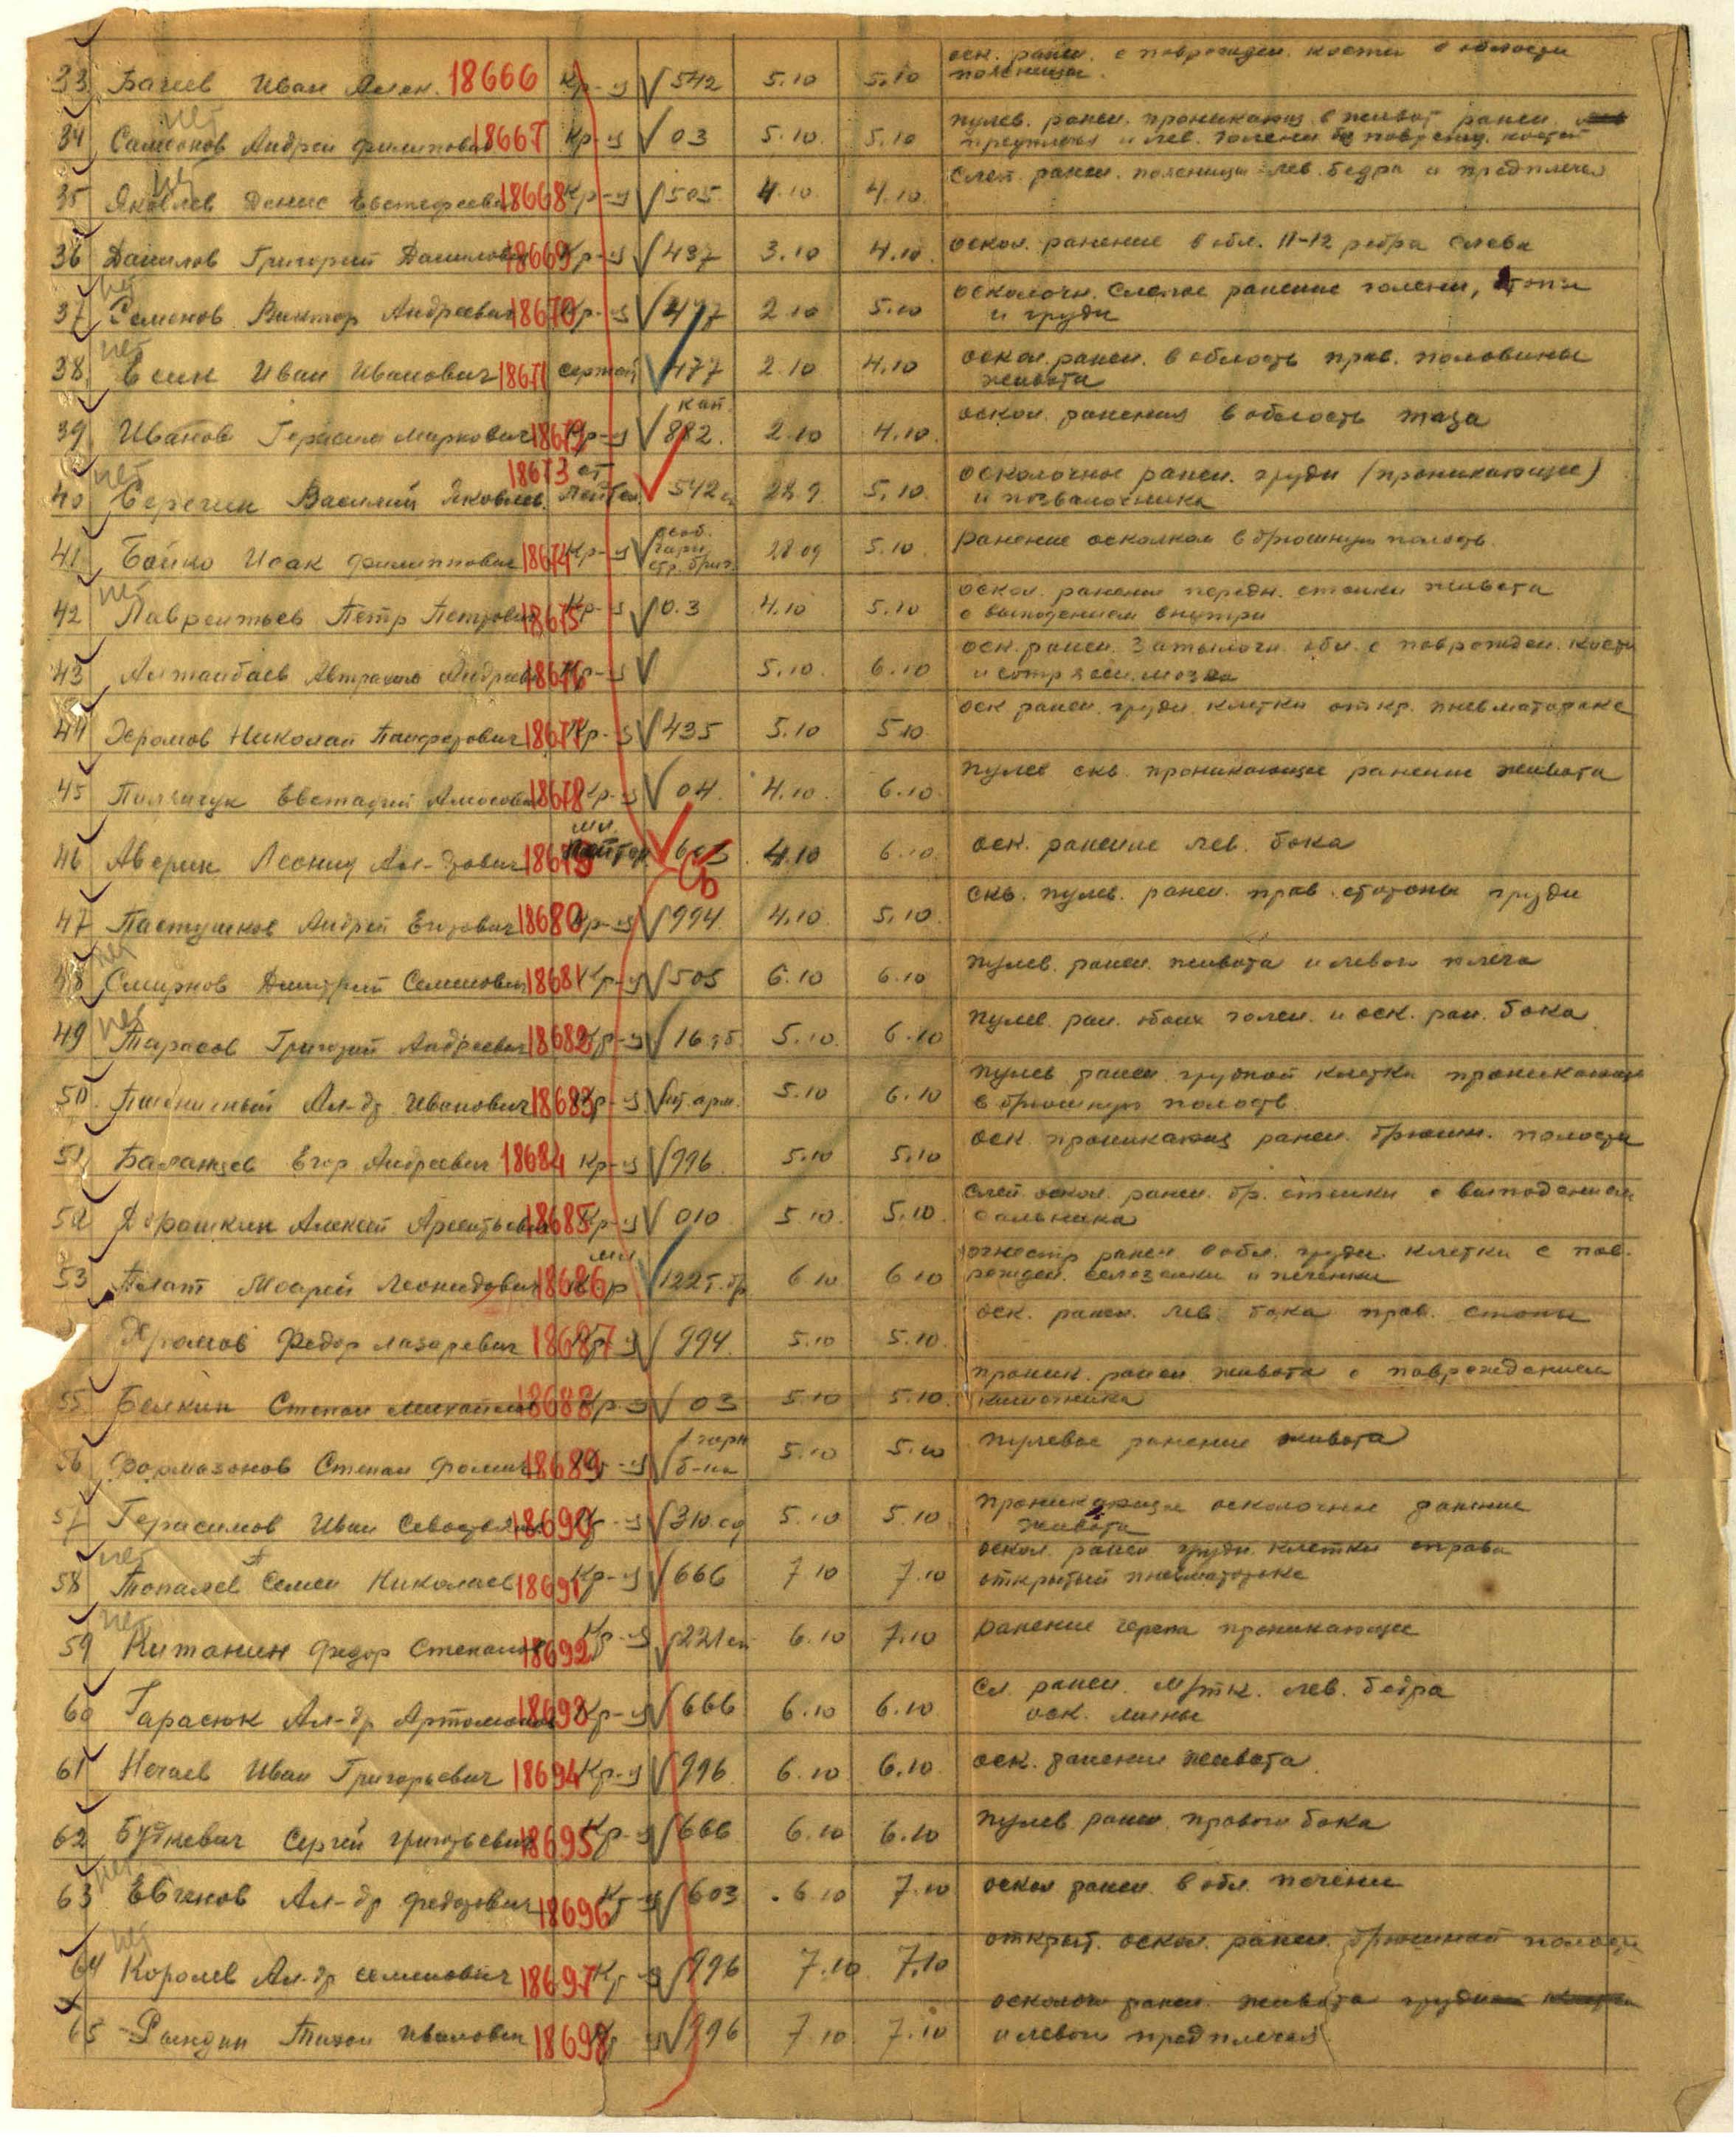 33 Бачев Иван Алек. 18666 Кр-ц 542 5.10 5.10 оск. ранен. с поврежден. кости в области
поясницы.
нет
34 Самсонов Андрей Филиппович 18667 Кр-ц 03 5.10. 5.10 пулев. ранен. проникающ в живот ранен.
предплечья и лев. голени без поврежд. костей
нет
35 Яковлев Денис Евстафеевич 18668 Кр-ц 505 4.10 4.10. Слеп. ранен. поясницы лев. бедра и предплечья
36 Данилов Григорий Данилович 18669 Кр-ц 437 3.10 4.10. оскол. ранение в обл. 11-12 ребра слева
нет
37 Семенов Виктор Андреевич 18670 Кр-ц 477 2.10 5.10 осколочн. слепое ранение голени, стопы
и груди
нет
38 Есин Иван Иванович 18671 сержан 477 2.10 4.10 оскол. ранен. в область прав. половины
живота
39 Иванов Герасим Маркович 1867 Кр-ц кап. 882. 2.10 4.10. оскол. ранения в область таза
нет 18673 ст
40 Василий Яковлев. лейтен. 542 28.9 5.10. осколочное ранен. груди (проникающее)
и позвоночника
41 Бойко Исак Филиппович 18674 Кр-ц особ. гарн. стр. бриг. 28.09 5.10. ранение осколком в брюшную полость
нет
42 Лаврентьев Петр Петрович 18675 Кр-ц 0.3 4.10 5.10 оскол. ранение передн. стенки живота
с выпадением внутри
43 Алтанбаев Андреев 18676 Кр-ц 5.10. 6.10 оск. ранен. затылочн. обл. с поврежден. кости
и сотрясен. мозга
44 Хромов Николай Панферович 18677 Кр-ц 435 5.10 5.10 оск ранен. грудн. клетки откр. пневматоракс
45 Евстафий Амосович 18678 Кр-ц 04. 4.10. 6.10 пулев скв. проникающее ранение живота
мл.
46 Аверин Леонид Ал-дрович 18679 лейтен 603 4.10 6.10. оск. ранение лев. бока
47 Пастушков Андрей Егорович 18680 Кр-ц 994. 4.10. 5.10. скв. пулев. ранен. прав. стороны груди
нет
48 Смирнов Дмитрий Семенович 18681 Кр-ц 505 6.10 6.10 пулев. ранен. живота и левого плеча
нет
49 Тарасов Григорий Андреевич 18682 Кр-ц 16 5.10. 6.10 пулев. ран. обоих голен. и оск. ран. бока
50. Пшеничный Ал-др Иванович 18683 Кр-ц шт. арм. 5.10 6.10 пулев ранен грудной клетки проникающее
в брюшную полость
51 Баланцев Егор Андреевич 18684 Кр-ц 996 5.10 5.10 оск. проникающ ранен. брюшн. полости
52 Дорошкин Алексей Арсентьевич 18685 Кр-ц 010 5.10. 5.10. слеп. оскол. ранен. бр. стенки с выпадением
сальника
мл
53 Плат Леонидович 18686 Кр 122 т.бр 6.10. 6.10 огнестр ранен в обл. грудн. клетки с пов-
режден. селезенки и печенки
Хромов Федор Лазаревич 18687 Кр-ц 994. 5.10 5.10. оск. ранен. лев. бока прав. стопы
55 Белкин Степан Михайлов 18688 Кр-ц 03 5.10 5.10. проник. ранен живота с повреждением
кишечника
56 Фармазонов Степан Фомич 18689 Кр-ц 1 гарн б-на 5.10 5.10 пулевое ранение живота
57 Герасимов Иван Севостьян 18690 Кр-ц 310 сд 5.10 5.10 проникающее осколочное ранение
живота
нет
58 Топалев Семен Николаев 18691 Кр-ц 666 7.10 7.10 оскол. ранен грудн. клетки справа
открытый пневматоракс
нет
59 Китанин Федор Степанов 18692 Кр-ц 221 сп 6.10 7.10 ранение черепа проникающее
60 Тарасюк Ал-др Артомонов 18693 Кр-ц 666 6.10 6.10 сл. ранен. м/тк. лев. бедра
оск. мины
61 Нечаев Иван Григорьевич 18694 Кр-ц 996. 6.10 6.10. оск. ранение живота
62 Буткевич Сергей Григорьевич 18695 Кр-ц 666 6.10 6.10 пулев ранен. правого бока
нет
63 Ал-др Федорович 18696 Кр-ц 603 6.10 7.10 оскол ранен. в обл. печени
нет
64 Королев Ал-др Семенович 18697 Кр-ц 996 7.10 7.10 открыт. оскол. ранен. брюшной полости
65 Тихон Иванович 18698 Кр-ц 996 7.10 7.10 осколоч ранен. живота
и левого предплечья